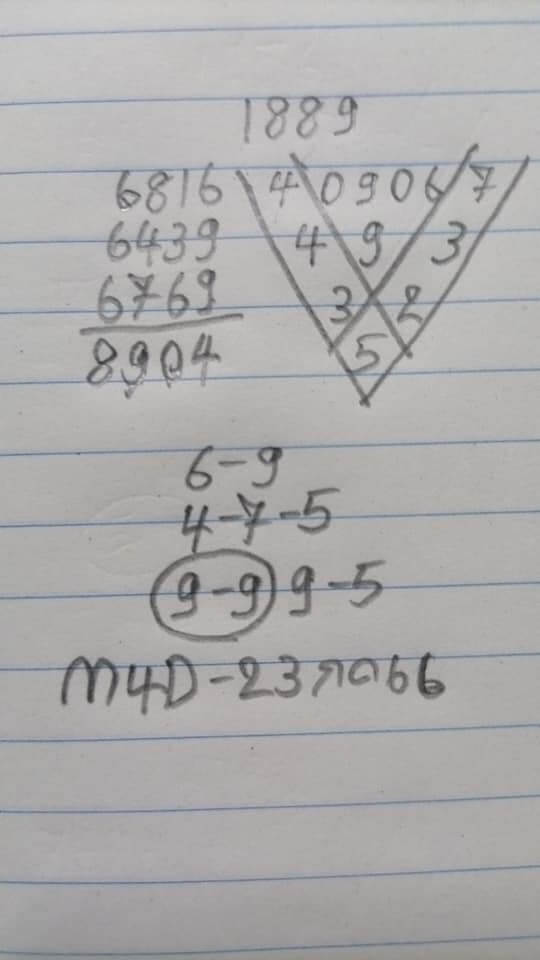 1889
6816 4 0906 7
6439 4 9 3
6769 3 2
8904 5
6-9
4-7-5
9-9 9-5
M4D-23 กด66